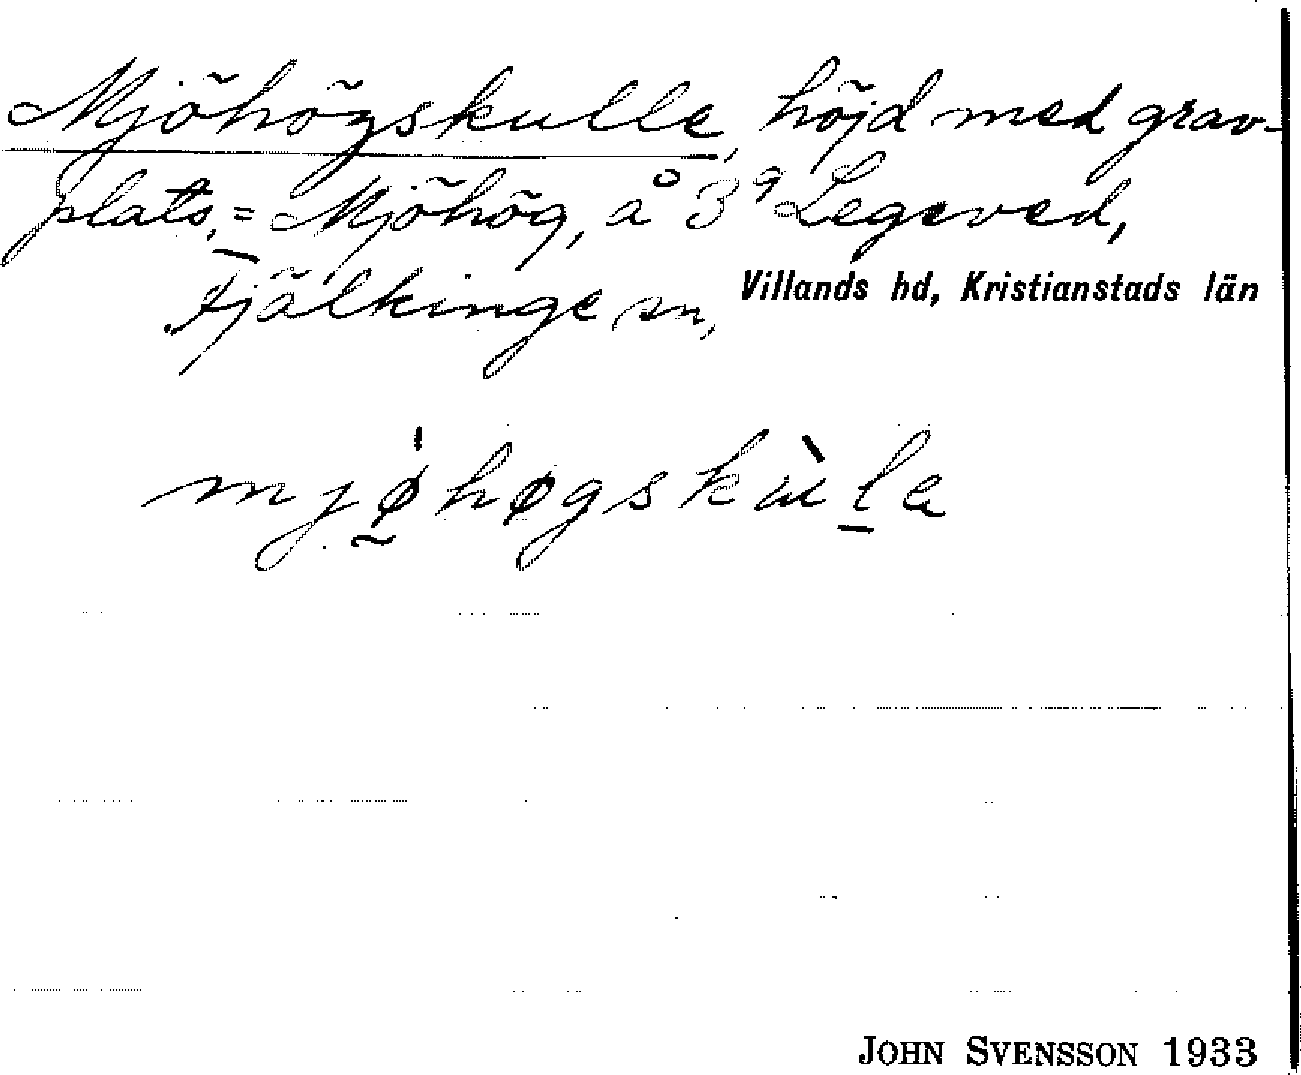 Mjöhögskulle, höjd med grav-
plats, = Mjöhög, å 3⁹ Legeved,
Fjälkinge sn, Villands hd, Kristianstads län
mjǿ̰høgskùl̠a
JOHN SVENSSON 1933